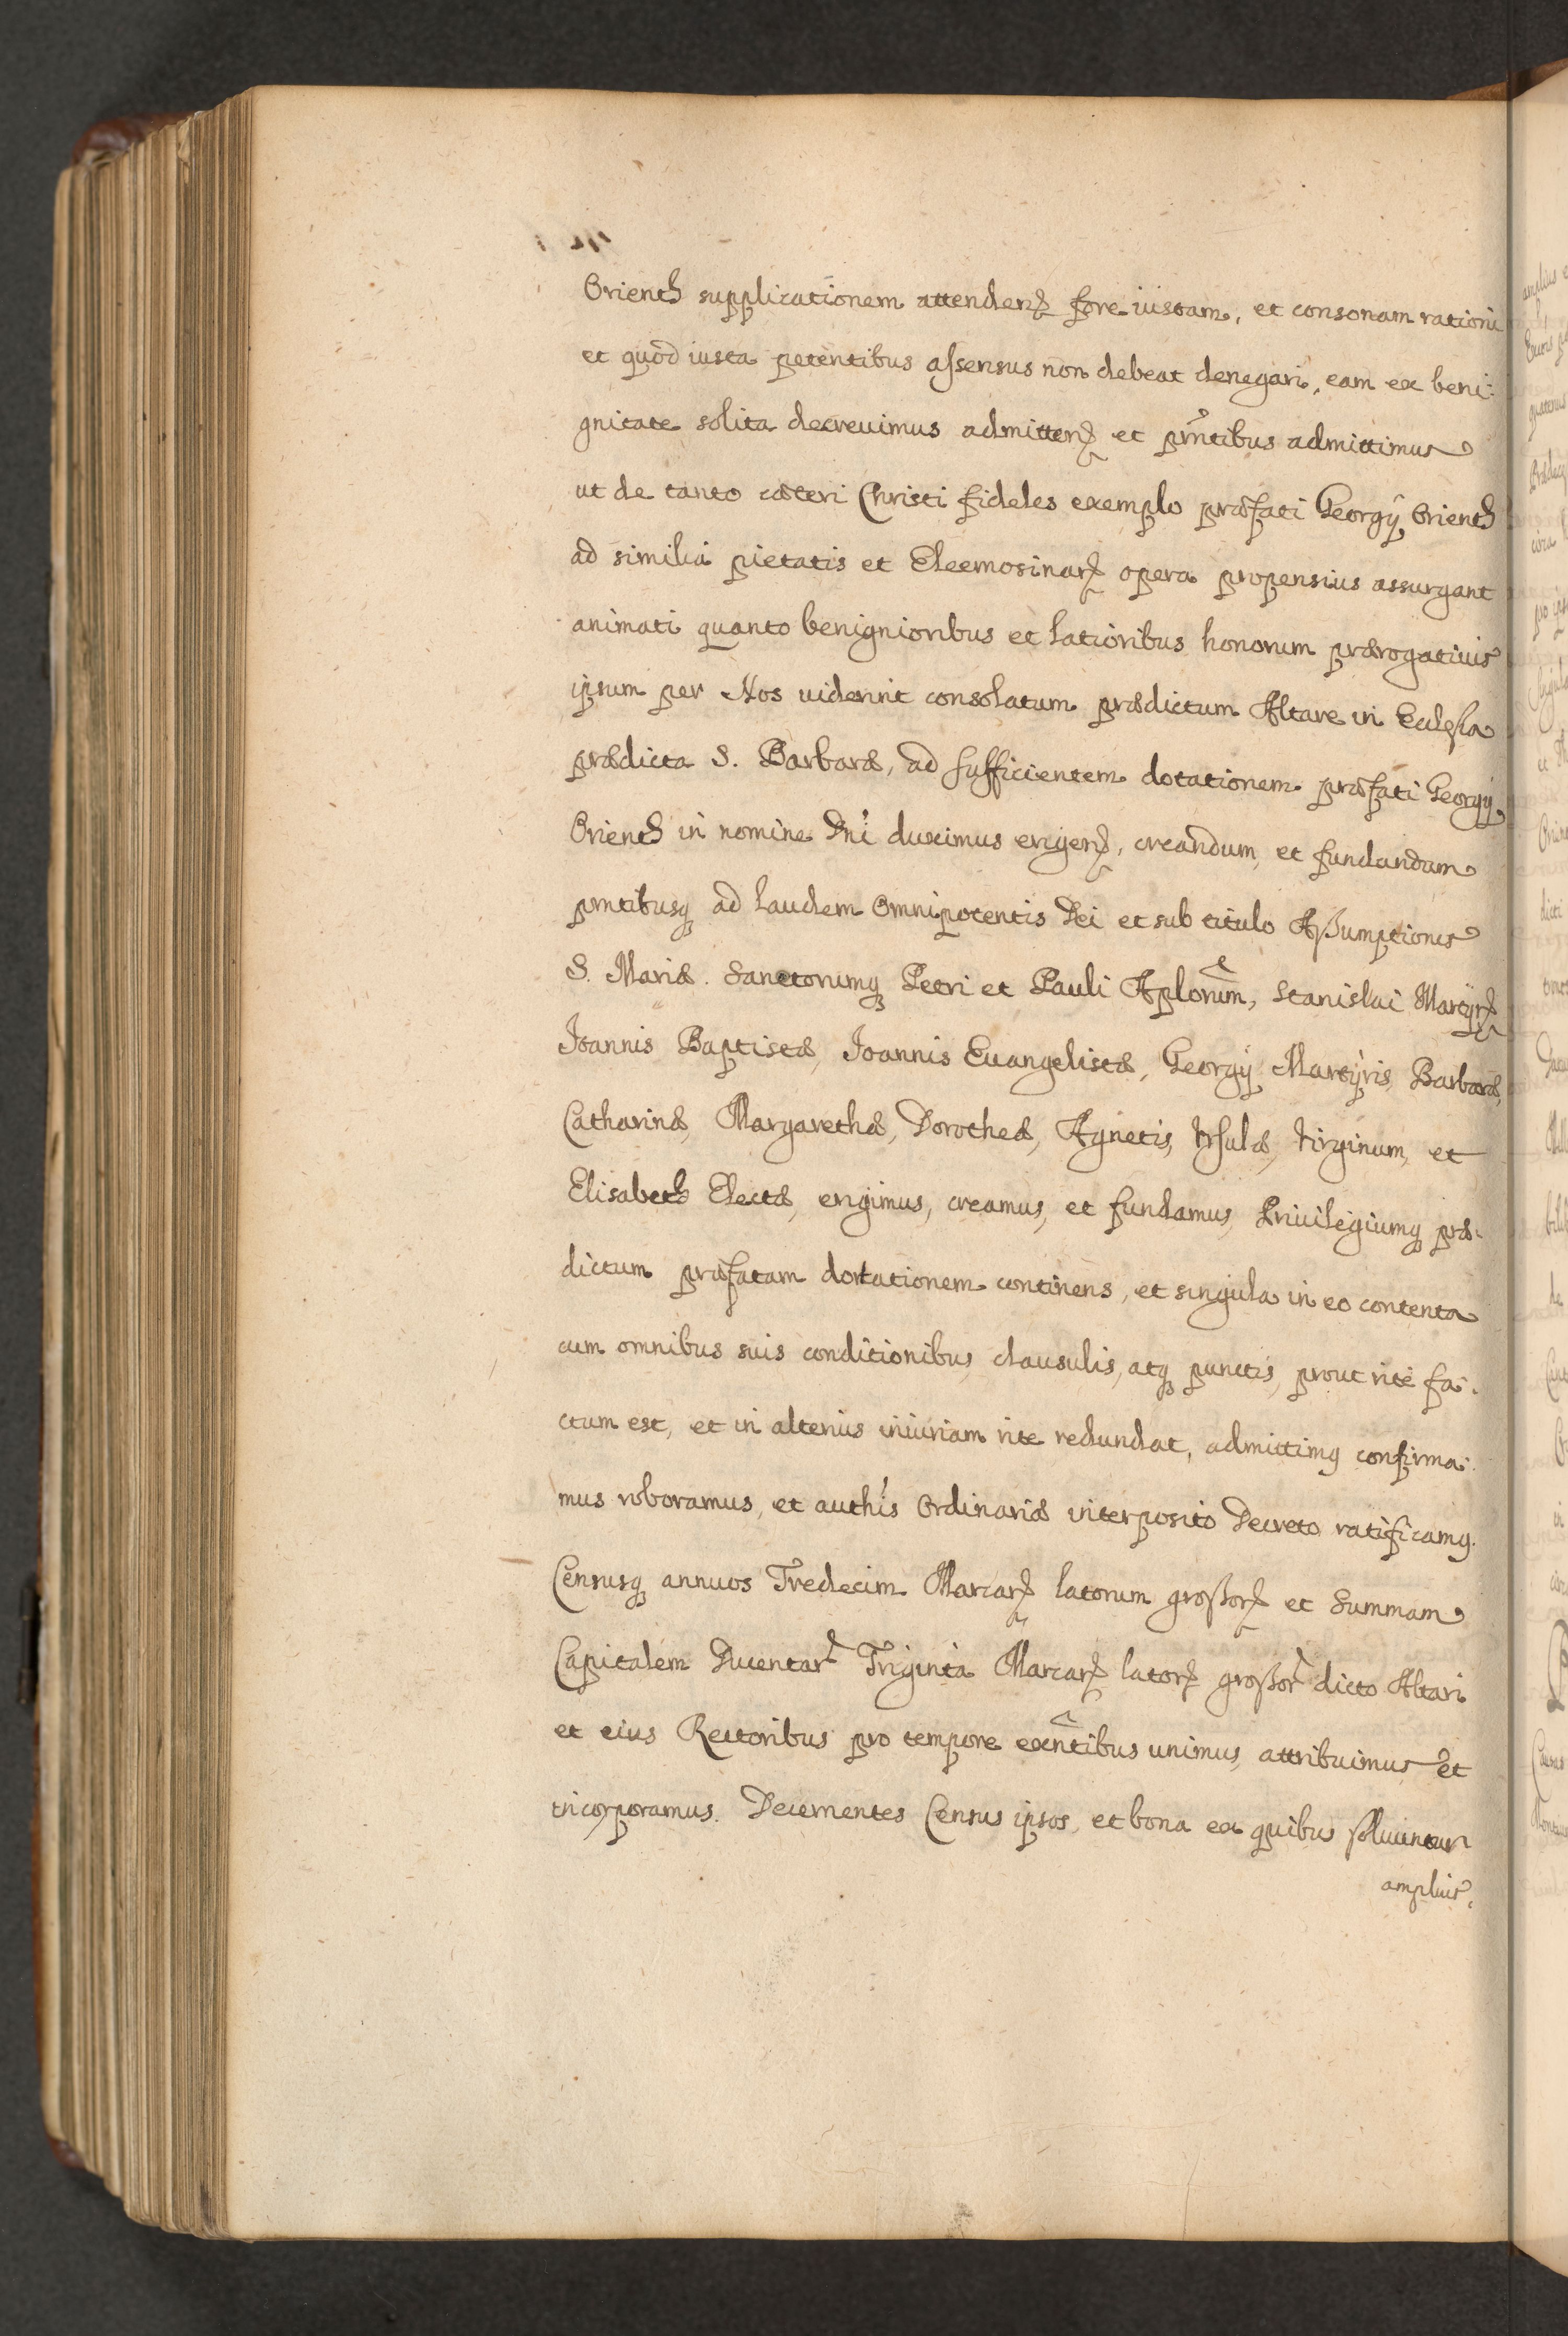 Orienth supplicationem attendenꝝ fore iustam, et consonam rationi
et quod iusta petentibus assensus non debeat denegari, eam ex beni:
gnitate solita decreuimus admittenꝝ et pr̃ntibus admittimus
ut de tanto cæteri Christi fideles exemplo præfati Georgÿ Orienth
ad similia pietatis et Eleemosinarꝝ opera propensius assurgant
animati quanto benignioribus et latioribus honorum prærogatiuis
ipsum per Nos uiderint consolatum prædictum Altare in Ecclesia
prædicta S. Barbaræ, ad sufficientem dotationem præfati Georgÿ
Orienth in nomine Dni duximus erigenꝝ, creandum, et fundandum
pntibusq ad laudem Omnipotentis Dei et sub titulo Assumptionis
S. Mariæ. Sanctorumq Petri et Pauli Aplorum, Stanislai Martyrꝝ
Ioannis Baptistæ, Ioannis Euangelistæ, Georgÿ Martyris, Barbaræ,
Catharinæ, Margarethæ, Dorotheæ, Agnetis, Vrsulæ, Virginum, et
Elisabeth Electæ, erigimus, creamus, et fundamus, Priuilegiumq præ-
dictum præfatam dotationem continens, et singula in eo contenta
cum omnibus suis conditionibus, clausulis, atq punctis, prout rite fa:
ctum est, et in alterius iniuriam rite redundat, admittimq confirma:
mus roboramus, et authis Ordinariæ interposito Decreto ratificamq.
Censusq annuos Tredecim Marcarꝝ latorum grossorꝝ et Summam
Capitalem Ducentarꝝ Triginta Marcarꝝ latorꝝ grossorꝝ dicto Altari
et eius Rectoribus pro tempore exñtibus unimus, attribuimus et
incorporamus. Decernentes Census ipsos, et bona ex quibus soluuntur
amplius